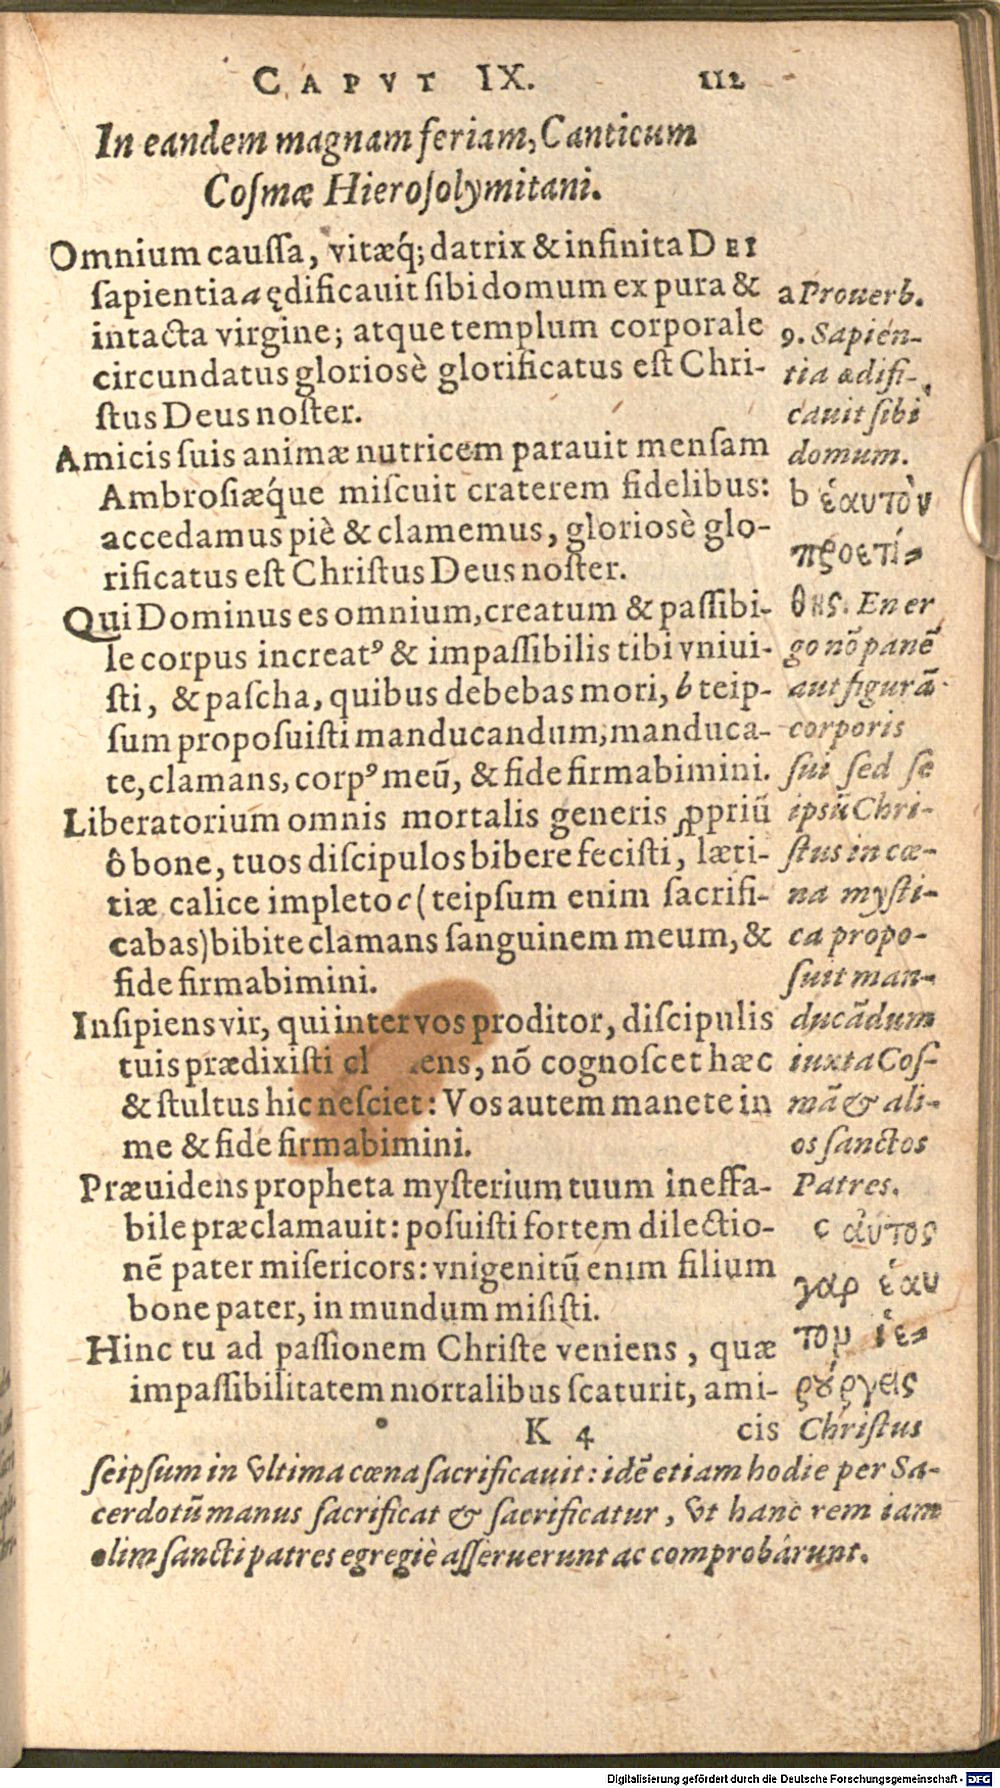 CAPVT IX. 112
In eandem magnam feriam, Canticum
Cosmæ Hierosolymitani.
Omnium caussa, vitæq́; datrix & infinita DEI
sapientia a ędificauit sibi domum ex pura &
intacta virgine; atque templum corporale
circundatus gloriosè glorificatus est Chri-
stus Deus noster.
Amicis suis animæ nutricem parauit mensam
Ambrosiæq́ue miscuit craterem fidelibus:
accedamus piè & clamemus, gloriosè glo-
rificatus est Christus Deus noster.
Qui Dominus es omnium, creatum & passibi-
le corpus increatꝰ & impassibilis tibi vniui-
sti, & pascha, quibus debebas mori, b teip-
sum proposuisti manducandum, manduca-
te, clamans, corpꝰ meũ, & fide firmabimini.
Liberatorium omnis mortalis generis ꝓpriũ
ô bone, tuos discipulos bibere fecisti, læti-
tiæ calice impleto c (teipsum enim sacrifi-
cabas) bibite clamans sanguinem meum, &
fide firmabimini.
Insipiens vir, qui inter vos proditor, discipulis
tuis prædixisti cl ens, nõ cognoscet hæc
& stultus hic nesciet: Vos autem manete in
me & fide firmabimini.
Præuidens propheta mysterium tuum ineffa-
bile præclamauit: posuisti fortem dilectio-
nẽ pater misericors: vnigenitũ enim filium
bone pater, in mundum misisti.
Hinc tu ad passionem Christe veniens, quæ
impassibilitatem mortalibus scaturit, ami-
K 4 cis
a Prouerb.
9. Sapien-
tia ædifi-
cauit sibi
domum.
b ἑαυτὸν
προετί-
θης. En er
go nõ panẽ
aut figurã
corporis
sui sed se
ipsũ Chri-
stus in cœ-
na mysti-
ca propo-
suit man-
ducãdum
iuxta Cos-
mã & ali-
os sanctos
Patres.
c αὐτος
γαρ ἑαυ
τον ἱε-
ρούργεις
Christus
seipsum in vltima cœna sacrificauit: idẽ etiam hodie per Sa-
cerdotũ manus sacrificat & sacrificatur, vt hanc rem iam
olim sancti patres egregiè asseruerunt ac comprobârunt.
Digitalisierung gefördert durch die Deutsche Forschungsgemeinschaft - DFG